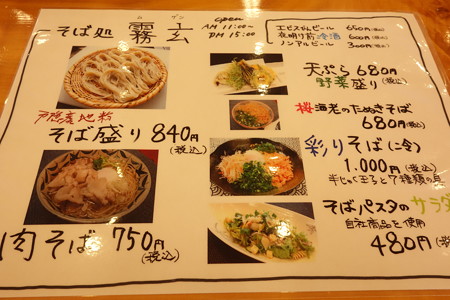 そば処 霧玄
open
AM 11:00~
PM 15:00
エビスかんビール 650円(税込)
夜明け前 冷酒 600円(税込)
ノンアルビール 300円(税込)
天ぷら 680円
野菜盛り (税込)
戸隠産地粉
そば盛り 840円
(税込)
桜海老のたぬきそば
680円(税込)
彩りそば(冷)
1,000円(税込)
半じゅく玉子と7種類の具
肉そば 750円
(税込)
そばパスタのサラダ
自社商品を使用
480円(税込)